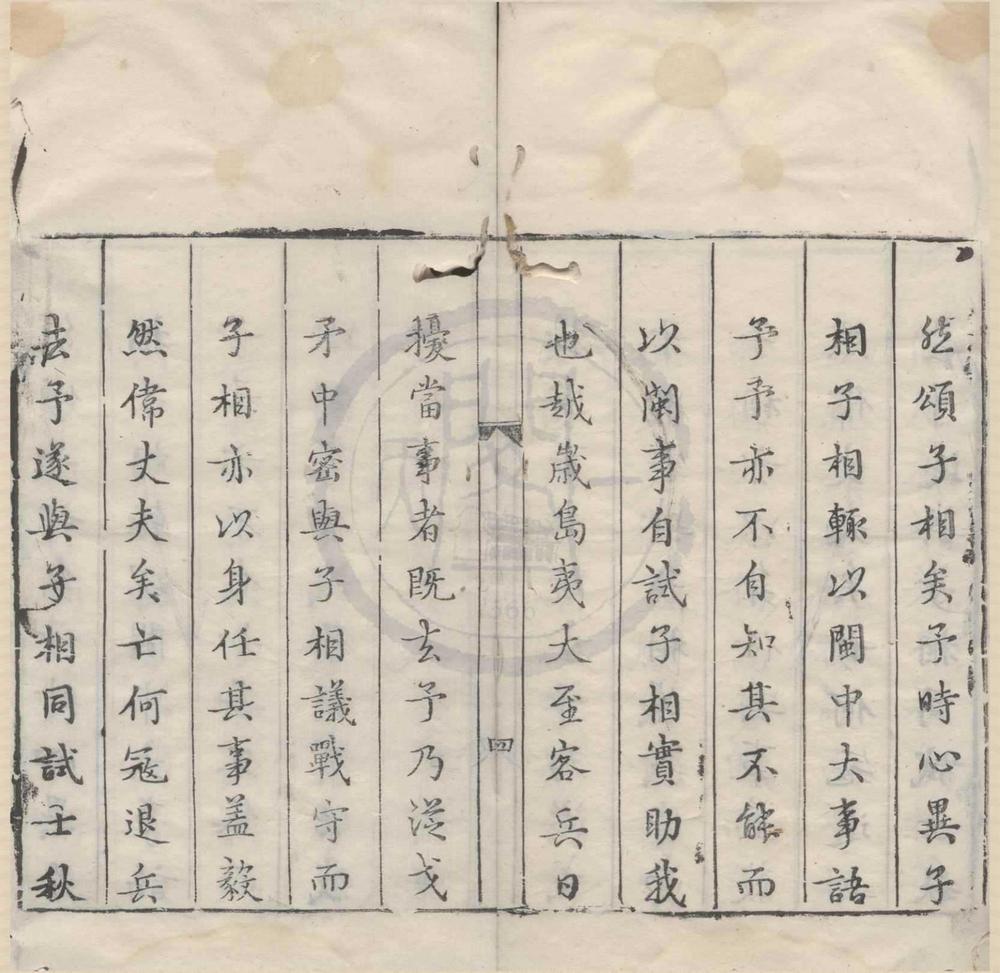 然頌子相矣予時心異子
相子相輒以閩中大事語
予予亦不自知其不能而
以閩事自試子相實助我
也越歲島夷大至客兵日
四
擾當事者既去予乃從戈
矛中密與子相議戰守而
子相亦以身任其事盖毅
然偉丈夫矣亡何冦退兵
去予遂與子相同試士秋